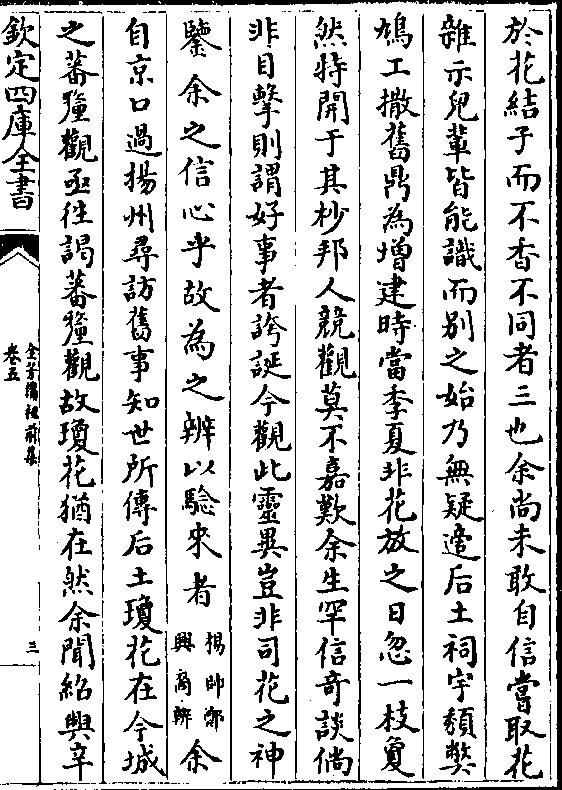 於花結子而不香不同者三也余尚未敢自信嘗取花
雜示兒輩皆能識而别之始乃無疑遶后土祠宇頽弊
鳩工撤舊鼎為增建時當季夏非花放之日忽一枝夐
然特開于其杪邦人競觀莫不嘉歎余生罕信奇談倘
非目擊則謂好事者誇誕今觀此靈異豈非司花之神
鑒余之信心乎故為之辨以驗來者 楊帥鄭興裔辨 余
自京口過揚州尋訪舊事知世所傳后土瓊花在今城
之蕃釐觀亟往謁蕃釐觀故瓊花猶在然余聞紹興辛
欽定四庫全書
全芳備祖前集
卷五
三